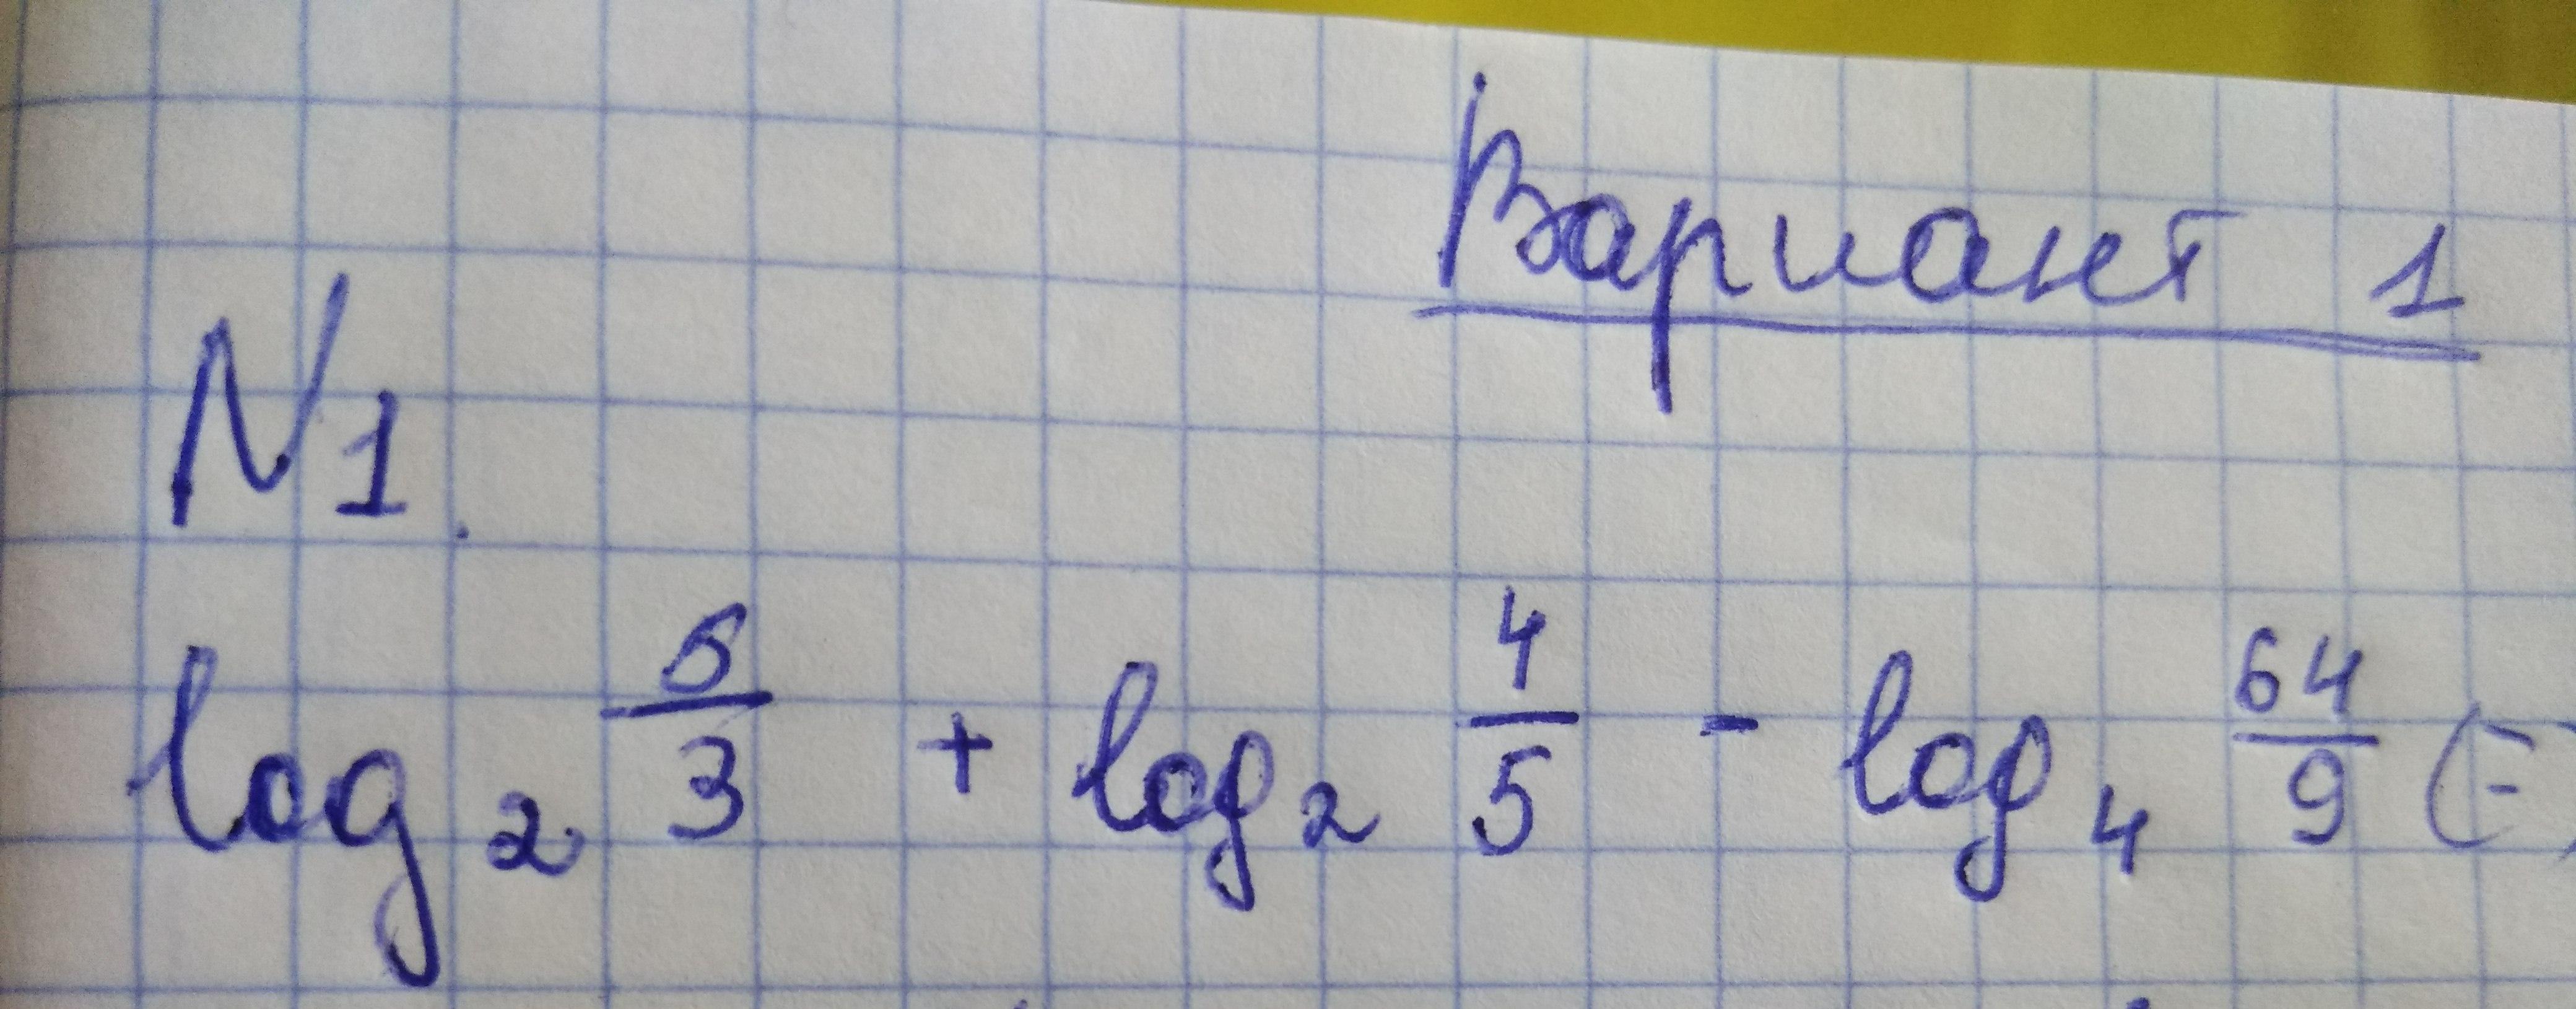 Вариант 1
N1.
log₂ 5/3 + log₂ 4/5 - log₄ 64/9 (=)